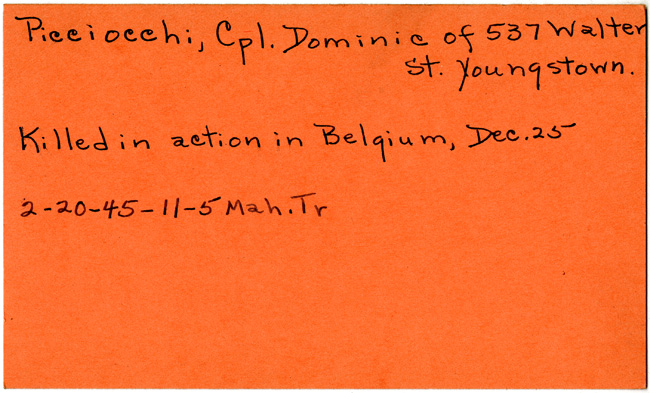 Picciocchi, Cpl. Dominic of 537 Walter
St. Youngstown.
Killed in action in Belgium, Dec. 25
2-20-45-11-5 Mah. Tr